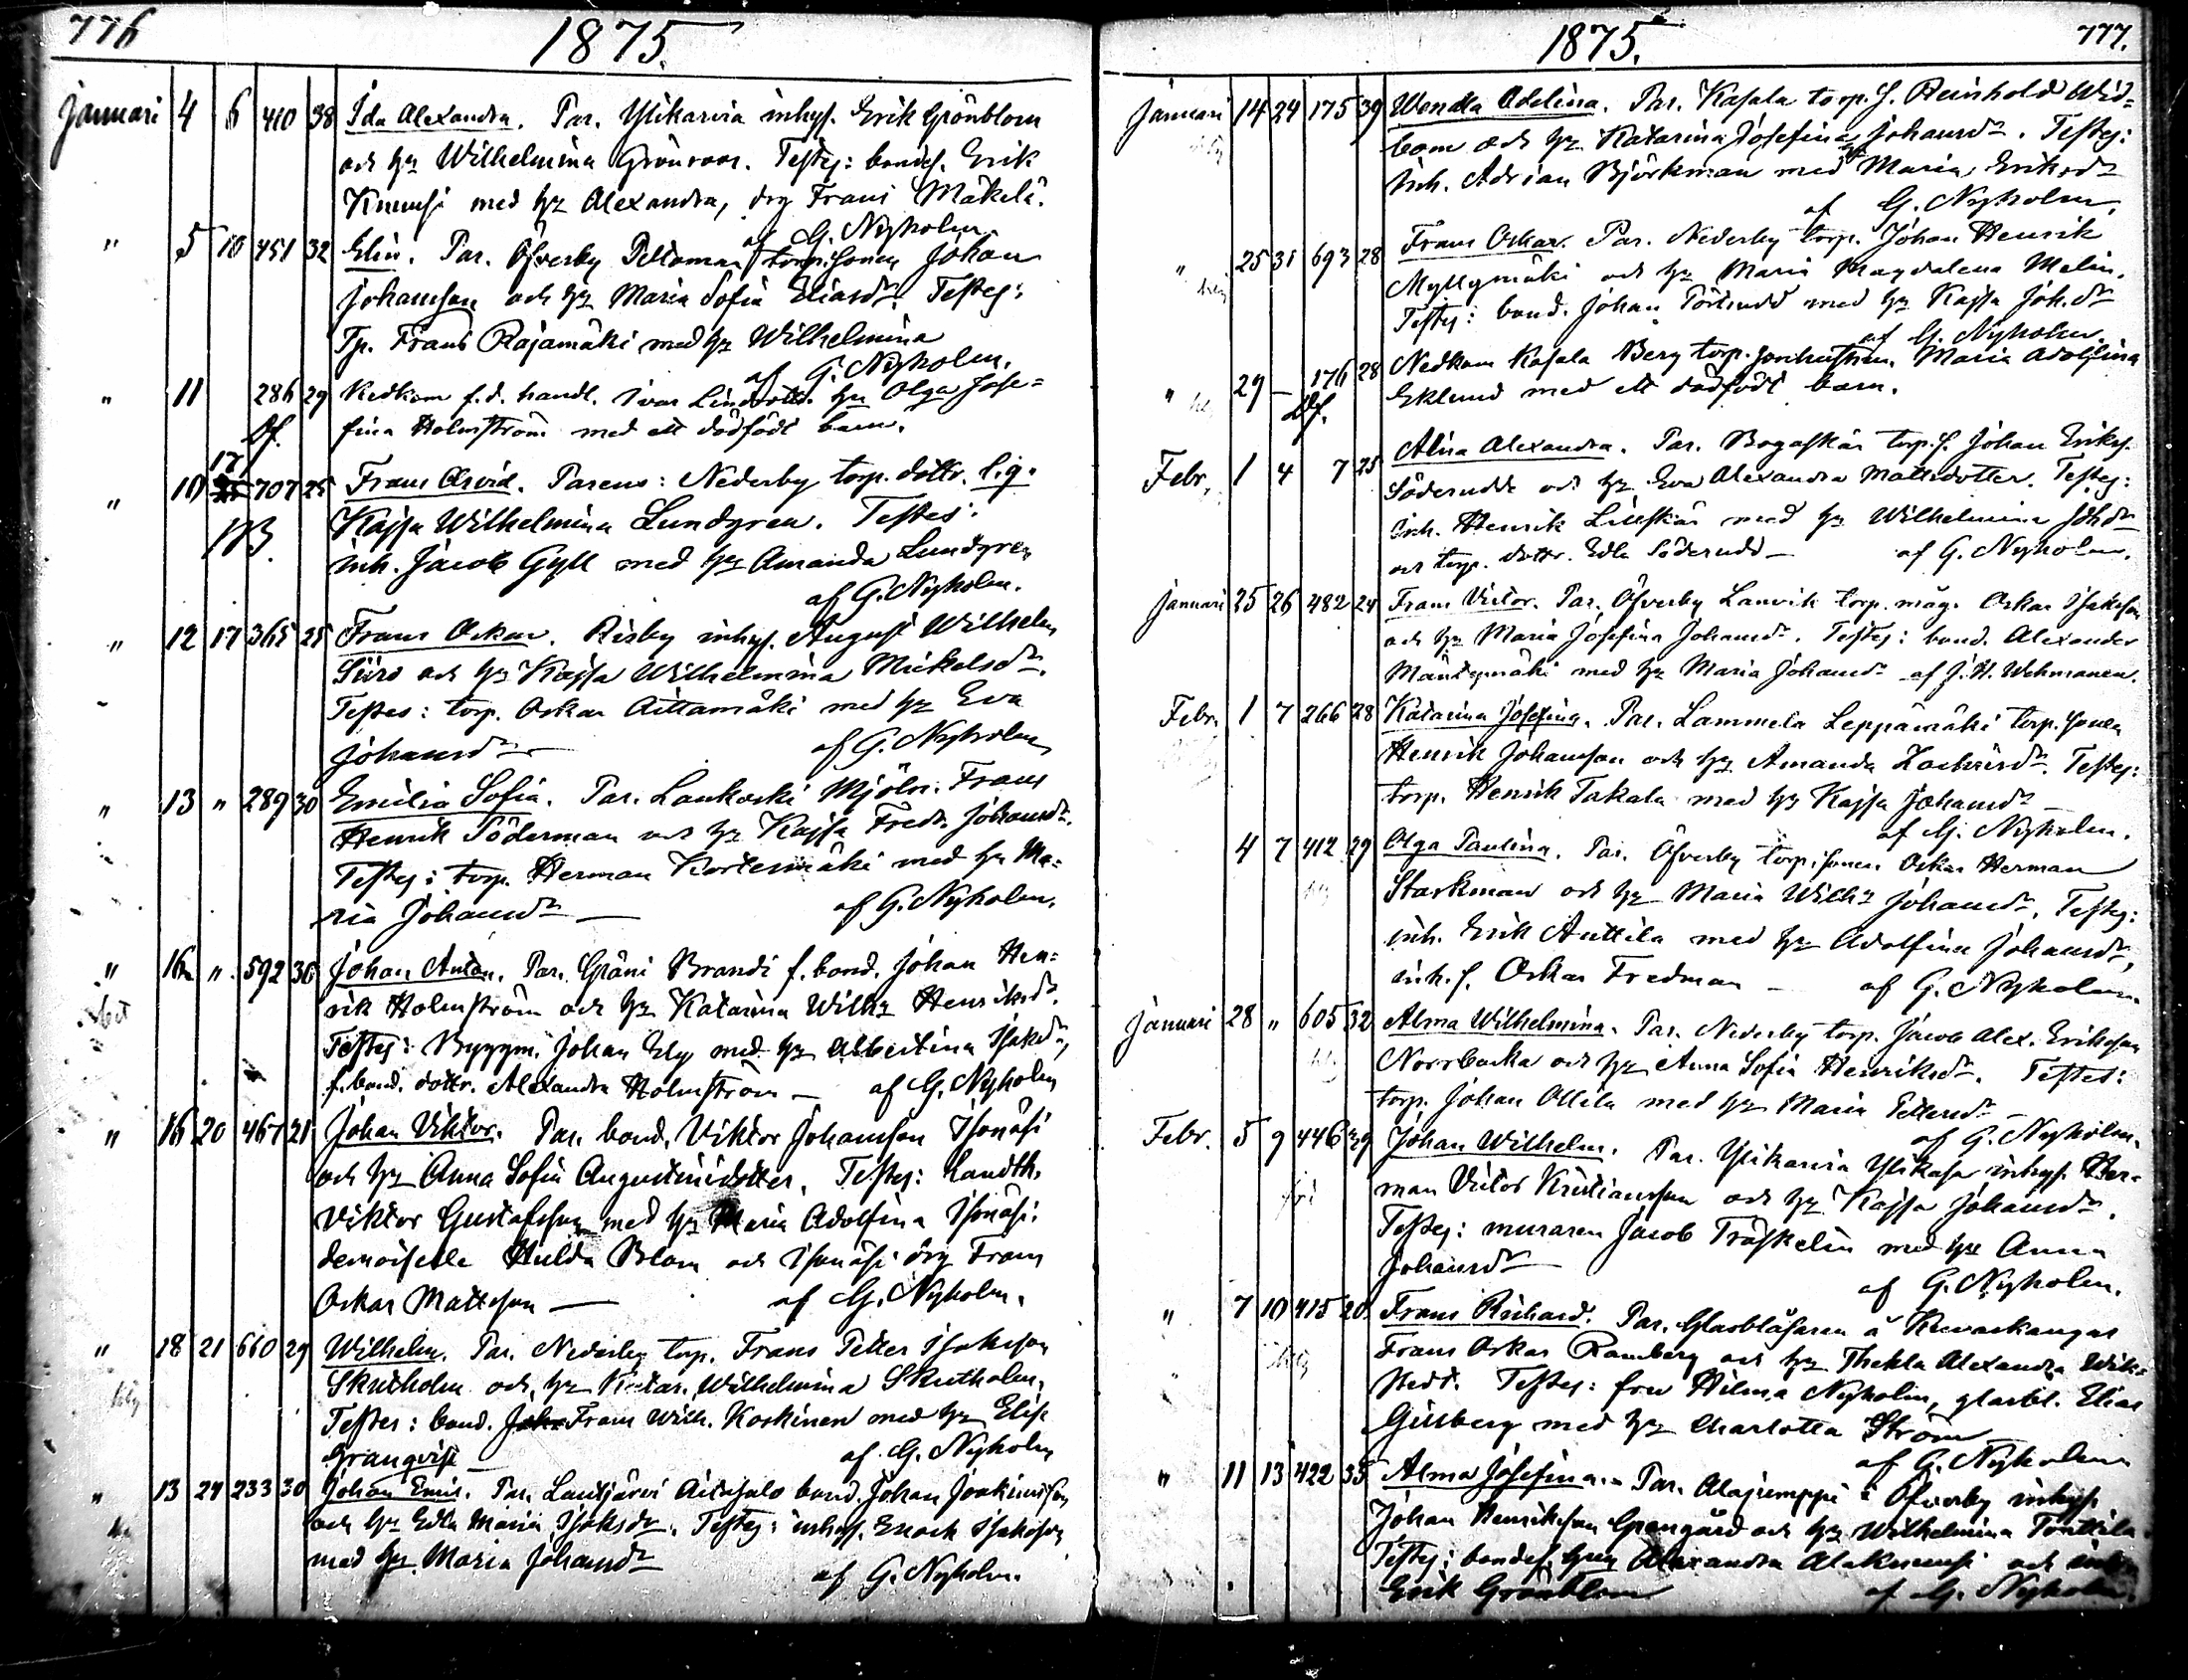 776
1875.
Januari 4 6 410 38 Ida Alexandra. Par. Ylikarvia inhys. Erik Grönblom
och hr Wilhelmina Grönroos. Testes: bondes. Erik
Knuusi med hr Alexandra, drg Frans Mäkelä.
af G. Nyholm.
" 5 10 451 32 Elin. Par. Öfverby Peltoman torp. sonen Johan
Johansson och hr Maria Sofia Eliasdr. Testes:
Tp. Frans Rajamäki med hr Wilhelmina
af G. Nyholm.
" 11 286 29 Nedkom f.d. handl. Ivar hu Olga Jose=
Df. fina Holmström med ett dödfödt barn.
17
" 10 707 25 Frans Arvid. Parens: Nederby torp. dottr. lig.
Kajsa Wilhelmina Lundgren. Testes:
inh. Jacob Gyll med hr Amanda Lundgren
af G. Nyholm.
" 12 17 365 25 Frans Oskar. Risby inhys. August Wilhelm
Siiro och hr Kajsa Wilhelmina Mickelsdr.
Testes: torp. Oskar Aittamäki med hr Eva
Johansdr — af G. Nyholm
" 13 " 289 30 Emilia Sofia. Par. Lankoski Mjöln. Frans
Henrik Söderman och hr Kajsa Fredr. Johansdr.
Testes: torp. Herman Kortesmäki med hr Ma=
ria Johansdr — af G. Nyholm.
" 16 " 592 36 Johan Anton. Par. Gräni Brandi f. bond. Johan Hen=
rik Holmström och hr Katarina Wilh. Henriksdr.
Testes: Byggm. Johan Ely med hr Albertina Isaksdr,
f. bond. dottr. Alexandra Holmström — af G. Nyholm
" 16 20 467 21 Johan Viktor. Par. bond. Viktor Johansson Isonäsi
och hr Anna Sofia Augustinidotter. Testes: Landth.
Viktor Gustafsson med hr Maria Adolfina Isonäsi:
demoiselle Hulda Blom och Isonäsi drg Frans
Oskar Mattsson — af G. Nyholm.
" 18 21 660 29 Wilhelm. Par. Nederby torp. Frans Petter Isaksson
Skutholm och hr Katar. Wilhelmina Skutholm.
Testes: bond. Frans Wilh. Koskinen med hr Elis
Granqvist — af G. Nyholm
" 13 24 233 30 Johan Emil. Par. Lautjärvi Aitasalo bond. Johan Joakimsson
och hr Edla Maria Isaksdr. Testes: inhys. Enoch Isaksson
med hr Maria Johansdr af G. Nyholm.
1875.
777.
Januari 14 24 175 39 Wendla Adelina. Par. Kasala torp. s. Reinhold Wid=
bom och hr Katarina Josefina Johansdr. Testes:
inh. Adrian Björkman med Maria Eriksdr
af G. Nyholm.
" 25 31 693 28 Frans Oskar. Par. Nederby torp. Johan Henrik
Myllymäki och hr Maria Magdalena Malin.
Testes: bond. Johan med hr Kajsa Joh.dr
af G. Nyholm.
" 29 — 176 28 Nedkom Kasala Berg torp. Maria Adolfina
Df. Eklund med ett dödfödt barn.
Febr. 1 4 7 25 Alina Alexandra. Par. Bogaskär torp. s. Johan Eriks.
Söderudd och hr Eva Alexandra Mattsdotter. Testes:
inh. Henrik Lilleskär med hr Wilhelmina Johdr
och torp. dottr. Edla Söderudd — af G. Nyholm.
Januari 25 26 482 24 Frans Victor. Par. Öfverby Lanvik torp. måg. Oskar Isaksson
och hr Maria Josefina Johansdr. Testes: bond. Alexander
Mäntymäki med hr Maria Johansdr af J. H. Wehmanen.
Febr. 1 7 266 28 Katarina Josefina. Par. Lammela Leppämäki torp. sonen
Henrik Johansson och hr Amanda Zachrisdr. Testes:
torp. Henrik Takala med hr Kajsa Johansdr —
af G. Nyholm.
4 7 412 29 Olga Paulina. Par. Öfverby torp. sonen Oskar Herman
Starkman och hr Maria Wilh. Johansdr. Testes:
inh. Erik Anttila med hr Adolfina Johansdr,
inh. s. Oskar Fredman — af G. Nyholm.
Januari 28 " 605 32 Alma Wilhelmina. Par. Nederby torp. Jacob Alex. Eriksson
Norrbacka och hr Anna Sofia Henriksdr. Testes:
torp. Johan Ollila med hr Maria Pettersdr —
af G. Nyholm.
Febr. 5 9 446 39 Johan Wilhelm. Par. Ylikarvia Ylikasa inhys. Her=
man Victor Kristiansson och hr Kajsa Johansdr.
Testes: muraren Jacob Träskelin med hr Anna
Johansdr — af G. Nyholm.
" 7 10 415 20 Frans Richard. Par. Glasblåsaren å
Frans Oskar Ramberg och hr Thekla Alexandra Wik=
stedt. Testes: fru Hilma Nyholm, glasbl. Elias
Gillberg med hr Charlotta Ström —
af G. Nyholm
" 11 13 422 35 Alma Josefina. Par. Alajumppi i Öfverby inhys.
Johan Henriksson Grangård och hr Wilhelmina Tonttila.
Testes: bondes. Alexandra Alaknuusi och
Erik Grönblom af G. Nyholm.